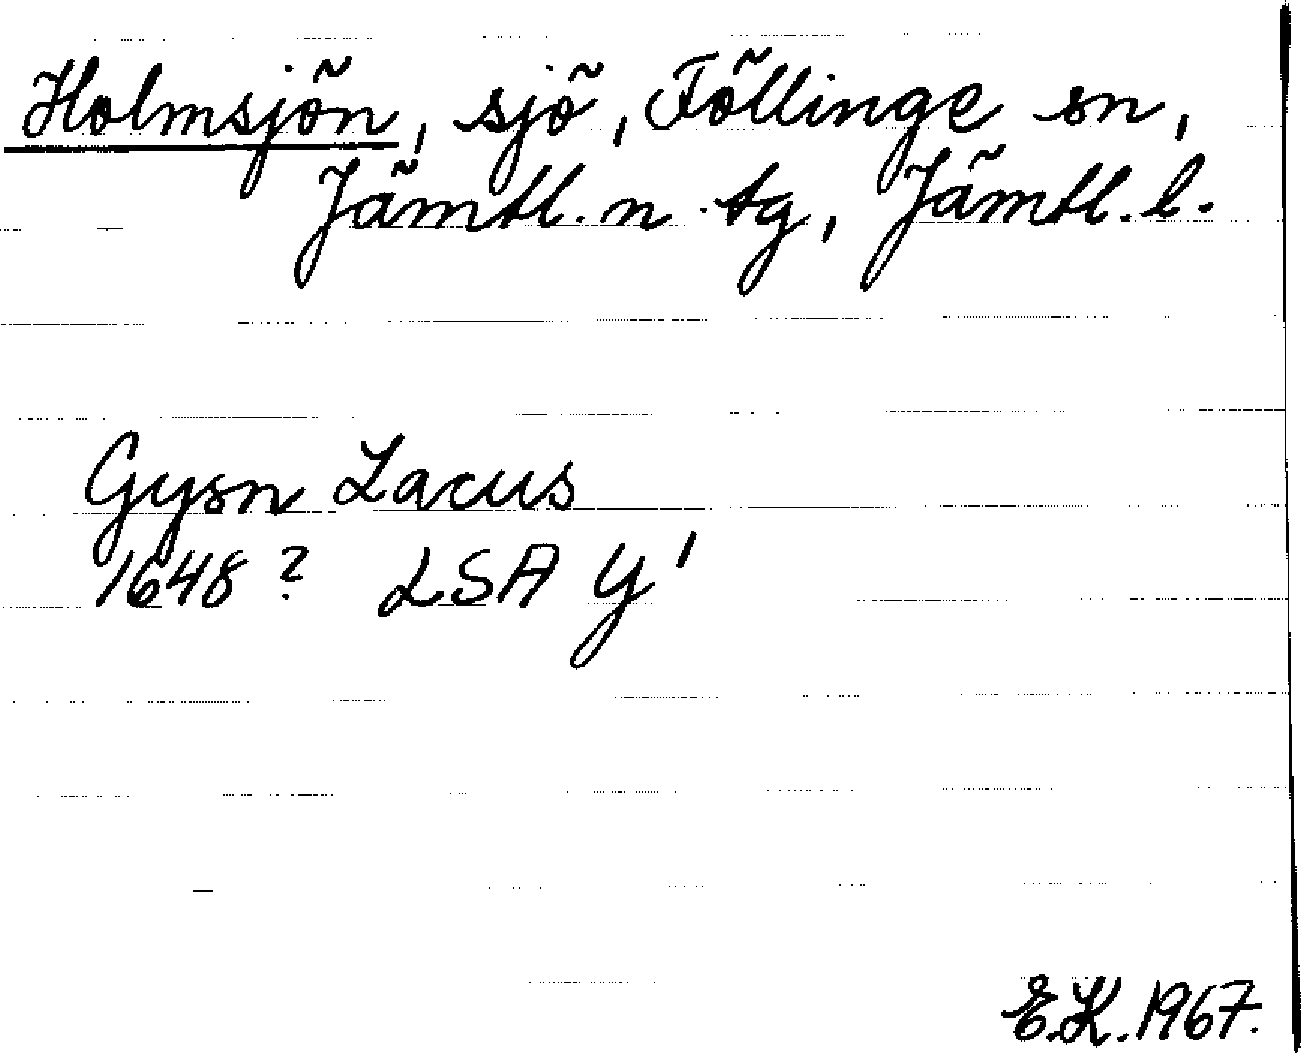 Holmsjön, sjö, Föllinge sn,
Jämtl. n. tg, Jämtl. l.
Gysn Lacus
1648? LSA Y 1
E.K. 1967.